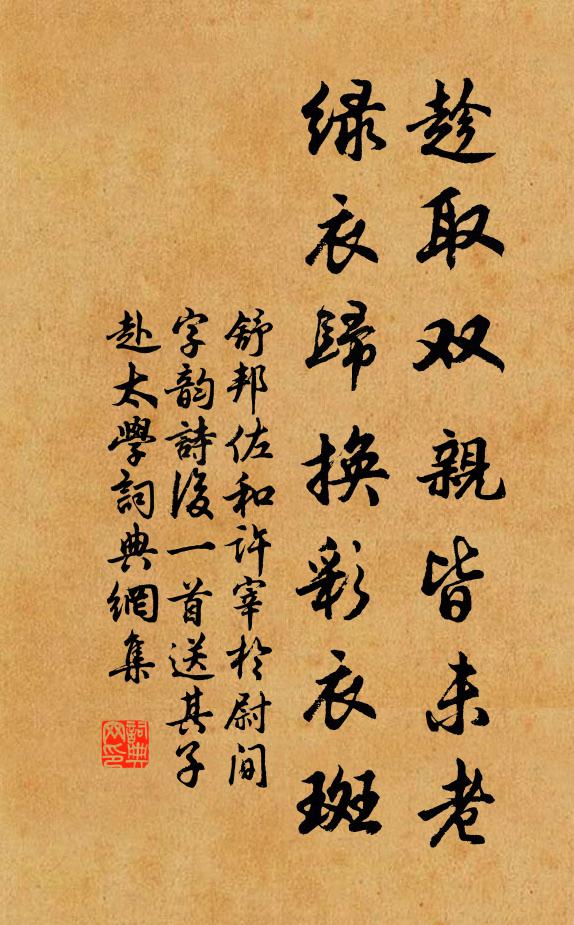 趁取双親皆未老
緑衣歸換彩衣斑
舒邦佐和許宰於尉间
字韵詩後一首送其子
赴太學詞典網集
詞典
网印